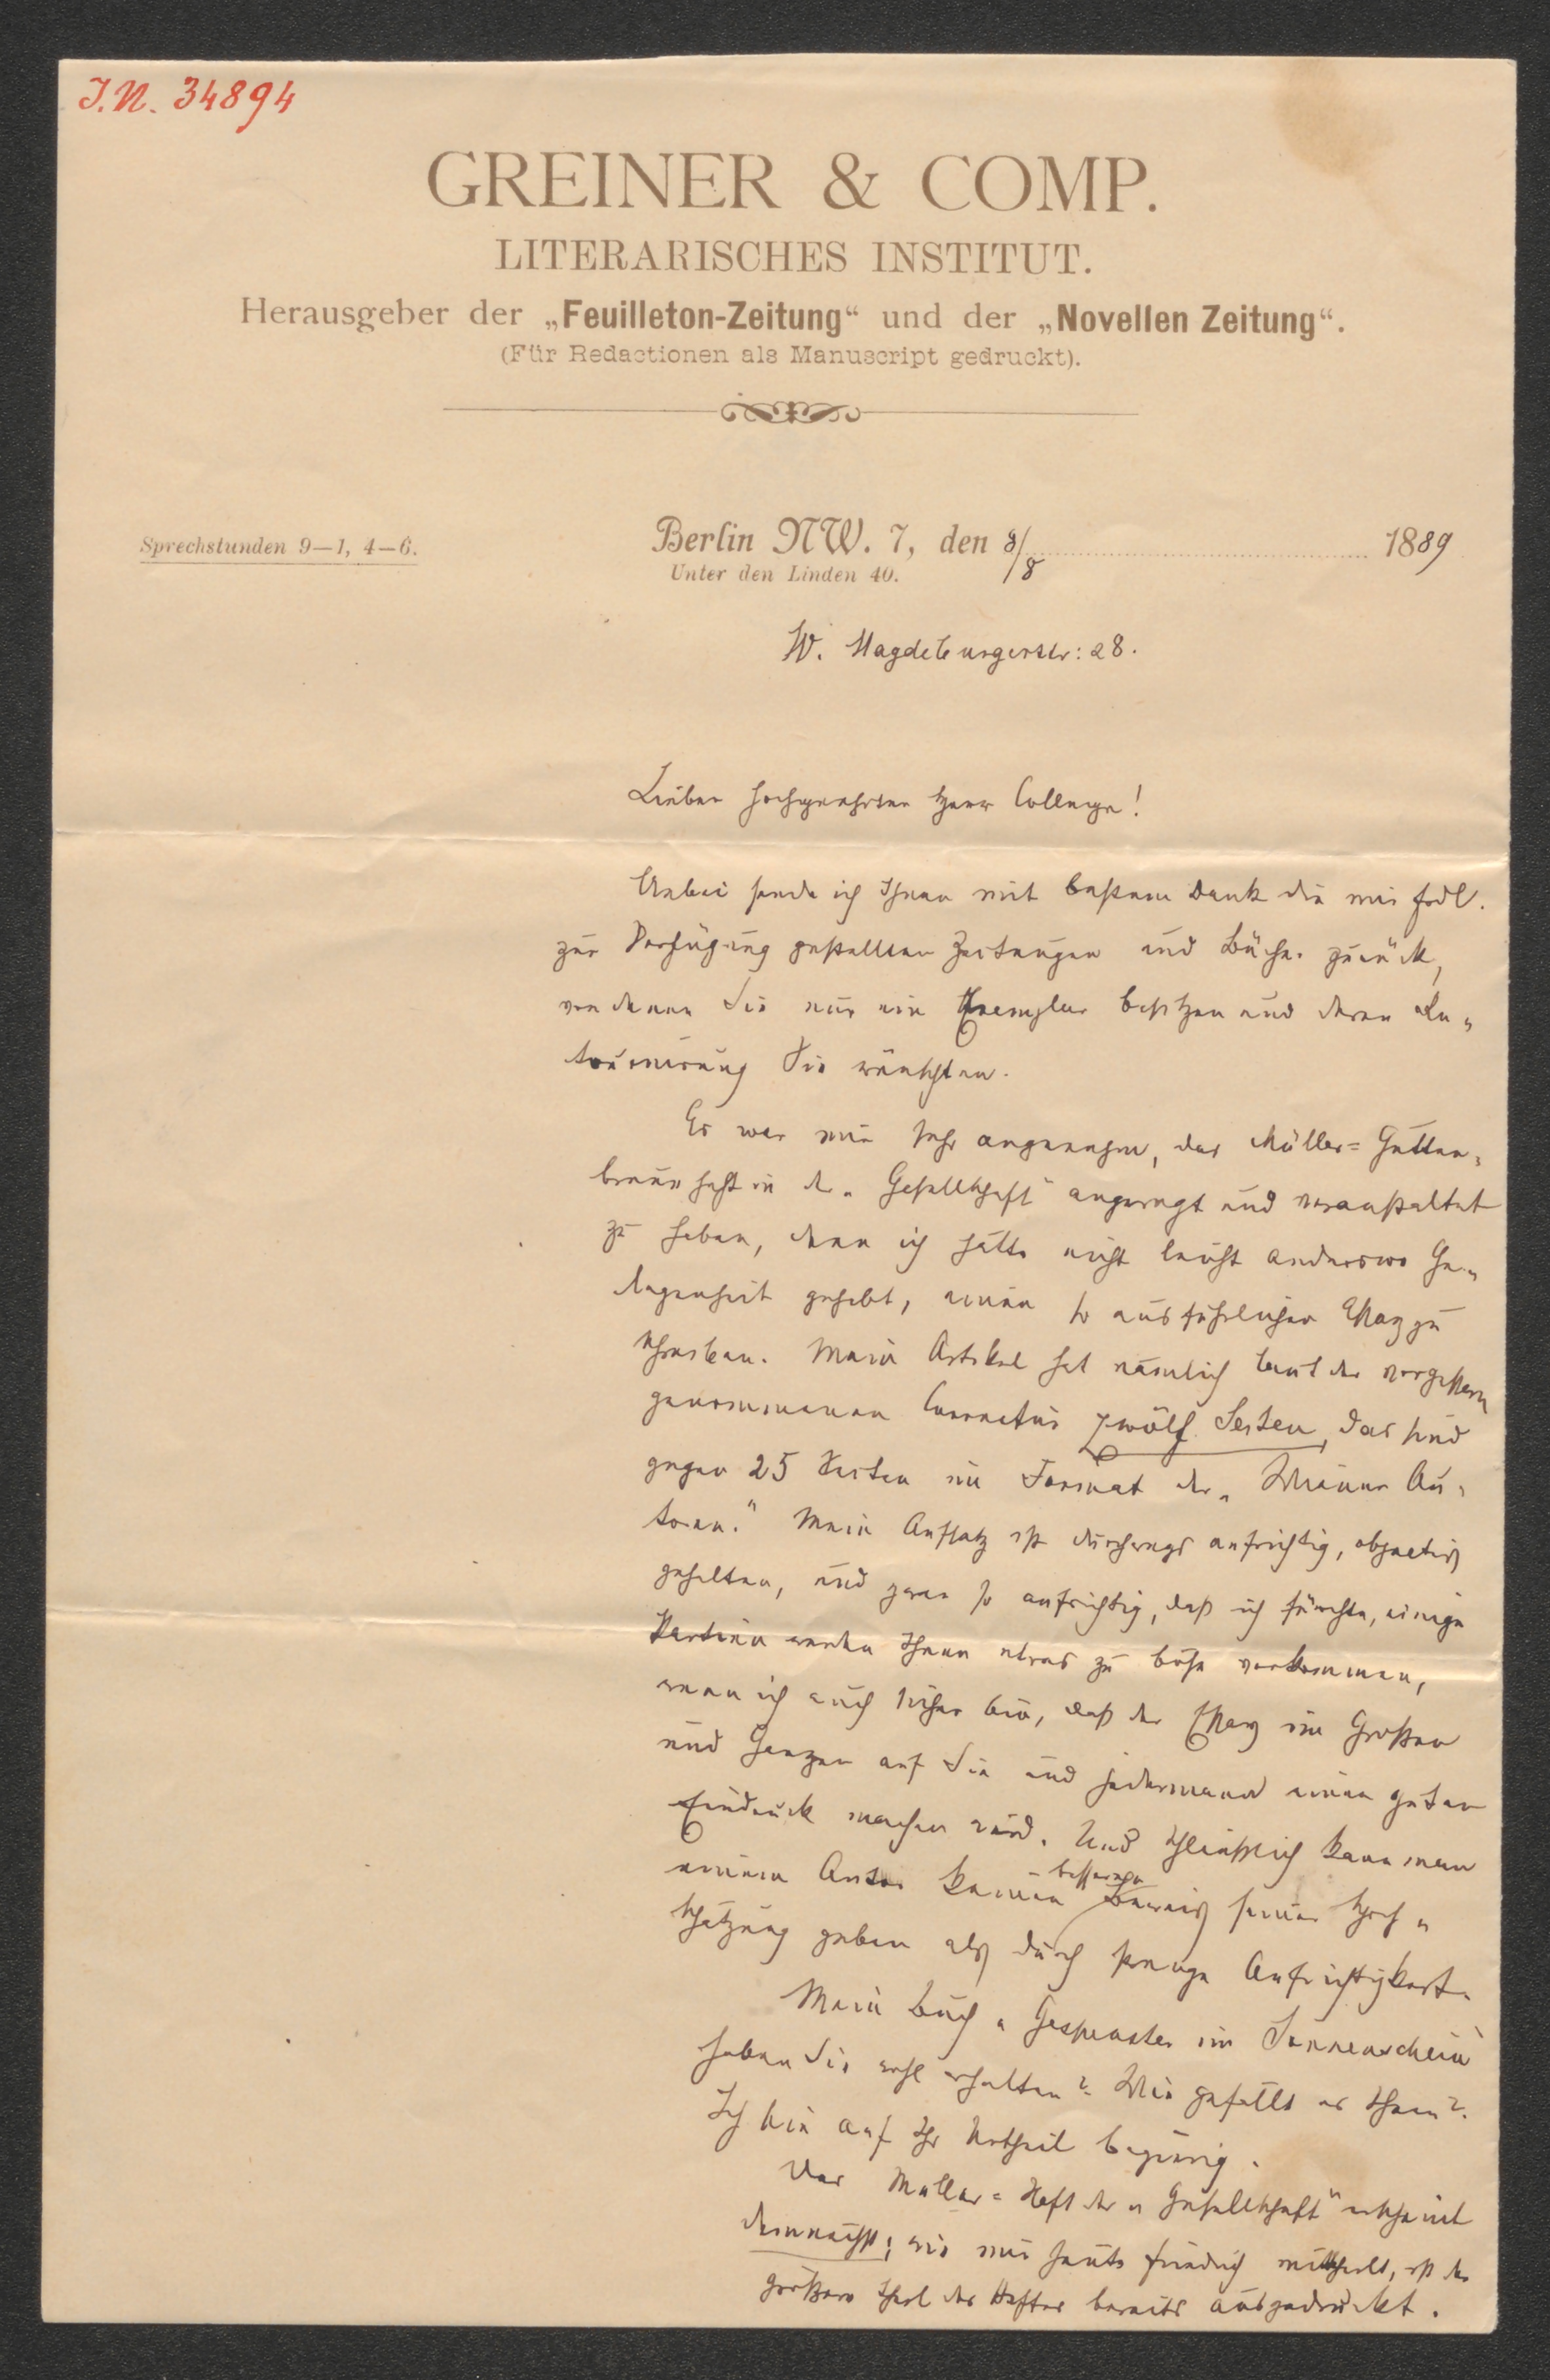 J.N. 34894
GREINER & COMP.
LITERARISCHES INSTITUT.
Herausgeber der „Feuilleton-Zeitung“ und der „Novellen Zeitung“.
(Für Redactionen als Manuscript gedruckt).
Sprechstunden 9—1, 4—6.
Berlin NW. 7, den 8/8 1889
Unter den Linden 40.
W. Magdeburgerstr: 28.
Lieber hochgeehrter Herr College!
Anbei sende ich Ihnen mit bestem Dank die mir frdl.
zur Verfügung gestellten Zeitungen und Bücher zurück,
von denen Sie nur ein Exemplar besitzen und deren Re„
tournirung Sie wünschten.
Es war mir sehr angenehm, das Müller=Gutten„
brunn heft in der „Gesellschaft“ angeregt und veranstaltet
zu haben, denn ich hätte nicht leicht anderswo Ge„
legenheit gehabt, einen so ausführlichen Essay zu
schreiben. Mein Artikel hat nämlich laut der vorgestern
genommenen Correctur zwölf Seiten, das sind
gegen 25 Seiten im Format der „Wiener Au„
toren.“ Mein Aufsatz ist durchwegs aufrichtig, objectiv
gehalten, und zwar so aufrichtig, daß ich fürchte, einige
Partien werden Ihnen etwas zu böse vorkommen,
wenn ich auch sicher bin, daß der Essay im Großen
und Ganzen auf Sie und jedermann einen guten
Eindruck machen wird. Und schließlich kann man
einem Autor keinen besseren Beweis seiner Hoch„
schätzung geben als durch strenge Aufrichtigkeit.
Mein Buch „Gespenster im Sonnenschein“
haben Sie wohl erhalten? Wie gefällt es Ihnen?
Ich bin auf Ihr Urtheil begierig.
Das Müller=Heft der „Gesellschaft“ erscheint
demnächst; wie mir heute Friedrich mittheilt, ist der
größere Theil des Heftes bereits ausgedruckt.